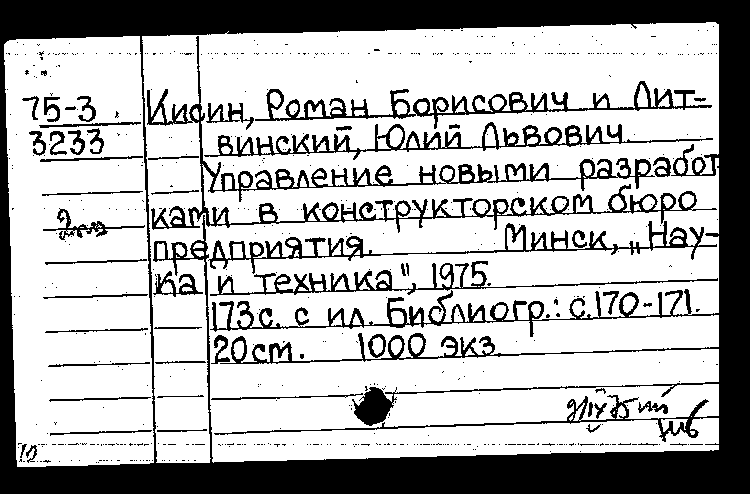 75-3 Кисин, Роман Борисович и Лит-
3233 винский, Юлий Львович.
Управление новыми разработ
2 экз ками в конструкторском бюро
предприятия. Минск, „Нау-
ка и техника", 1975.
173с. с ил. Библиогр.: с.170-171.
20см. 1000 экз.
10